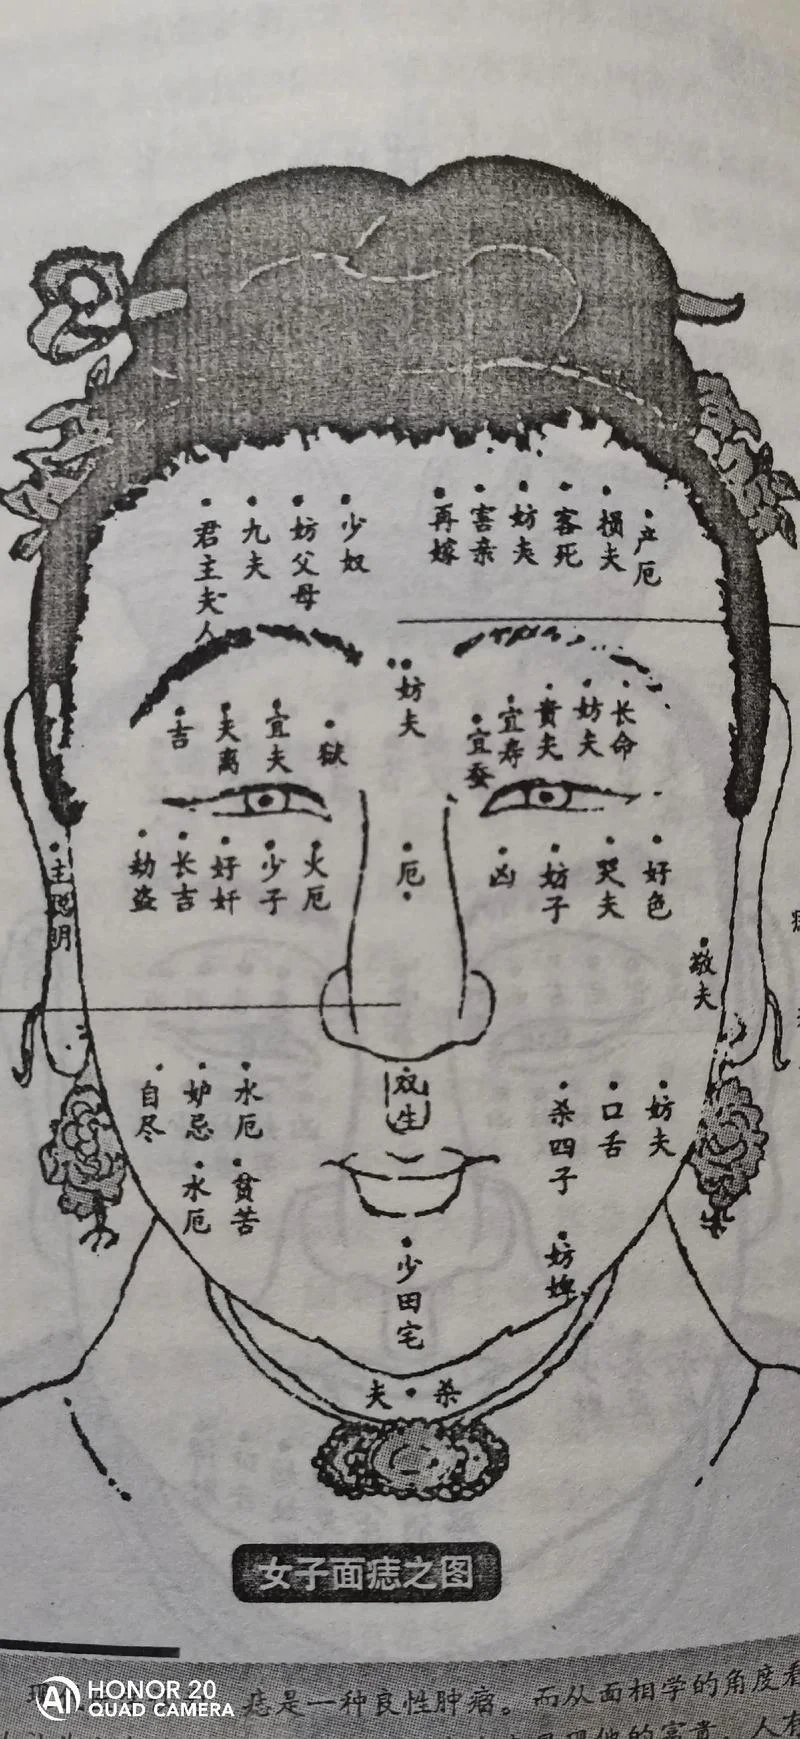 君主夫人
九夫
妨父母
少奴
再嫁
害亲
妨夫
客死
损夫
产厄
妨夫
吉
夫离
宜夫
狱
宜蚕
宜寿
贵夫
妨夫
长命
劫盗
长吉
好奸
少子
火厄
厄
凶
妨子
哭夫
好色
主聪明
敬夫
自尽
妒忌
水厄
双生
杀四子
口舌
妨夫
水厄
贫苦
少田宅
妨婢
夫 杀
女子面痣之图
痣是一种良性肿瘤。而从面相学的角度看
他的富贵。人有
HONOR 20
QUAD CAMERA